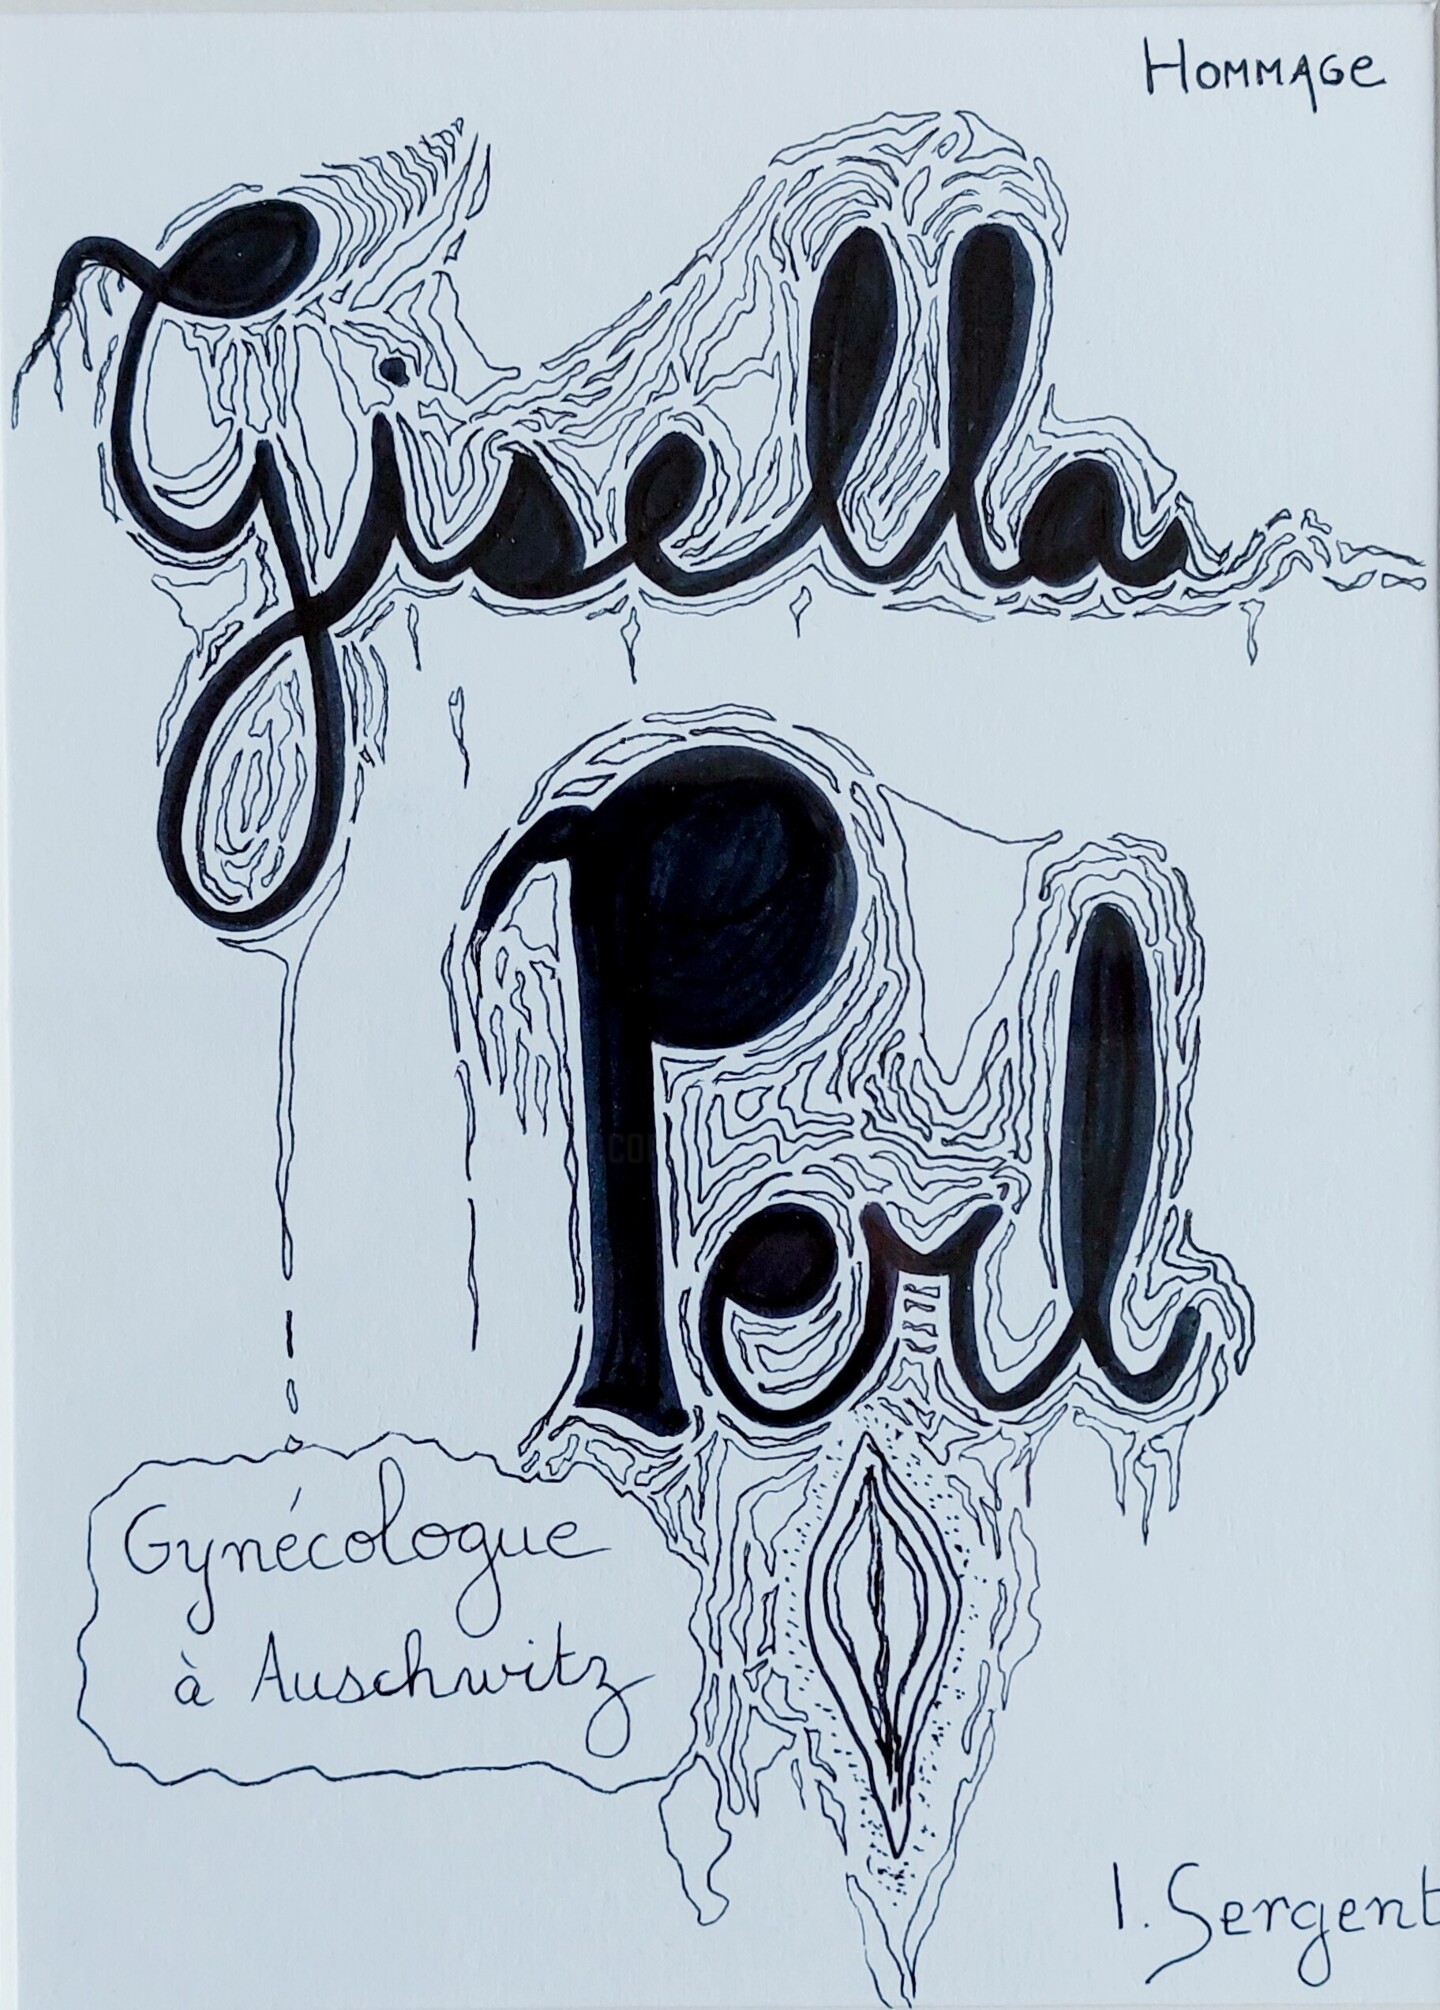 Hommage
Gisella
Perl
Gynécologue
à Auschwitz
I. Sergent